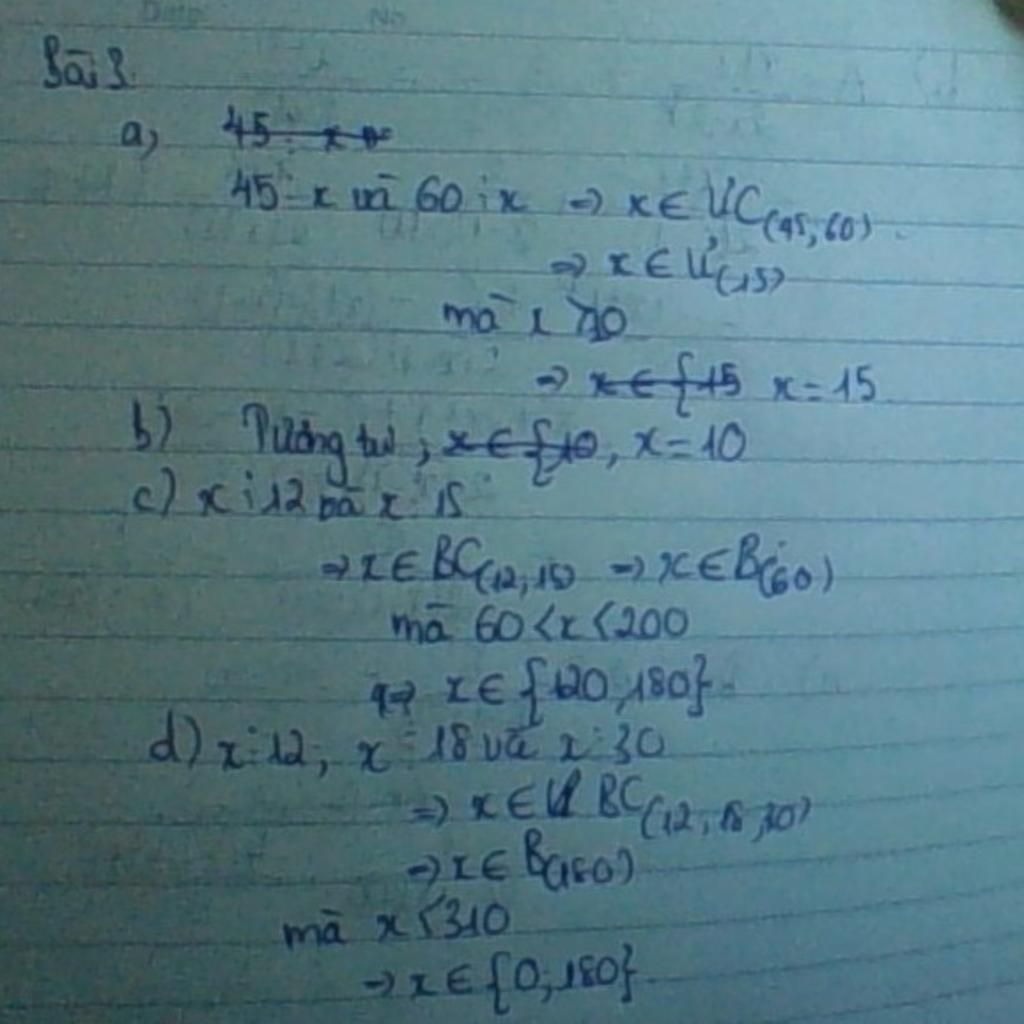 Bài 3
a) 45 ⋮ x v
45 ⋮ x và 60 ⋮ x => x ∈ ƯC(45, 60)
=> x ∈ Ư(15)
mà x > 10
=> x ∈ {15 x = 15
b) Tương tự ; x ∈ {10, x = 10
c) x ⋮ 12 và x ⋮ 15
=> x ∈ BC(12, 15) => x ∈ B(60)
mà 60 < x < 200
=> x ∈ {120, 180}
d) x ⋮ 12, x ⋮ 18 và x ⋮ 30
=> x ∈ BC(12, 18, 30)
=> x ∈ B(180)
mà x < 310
=> x ∈ {0; 180}